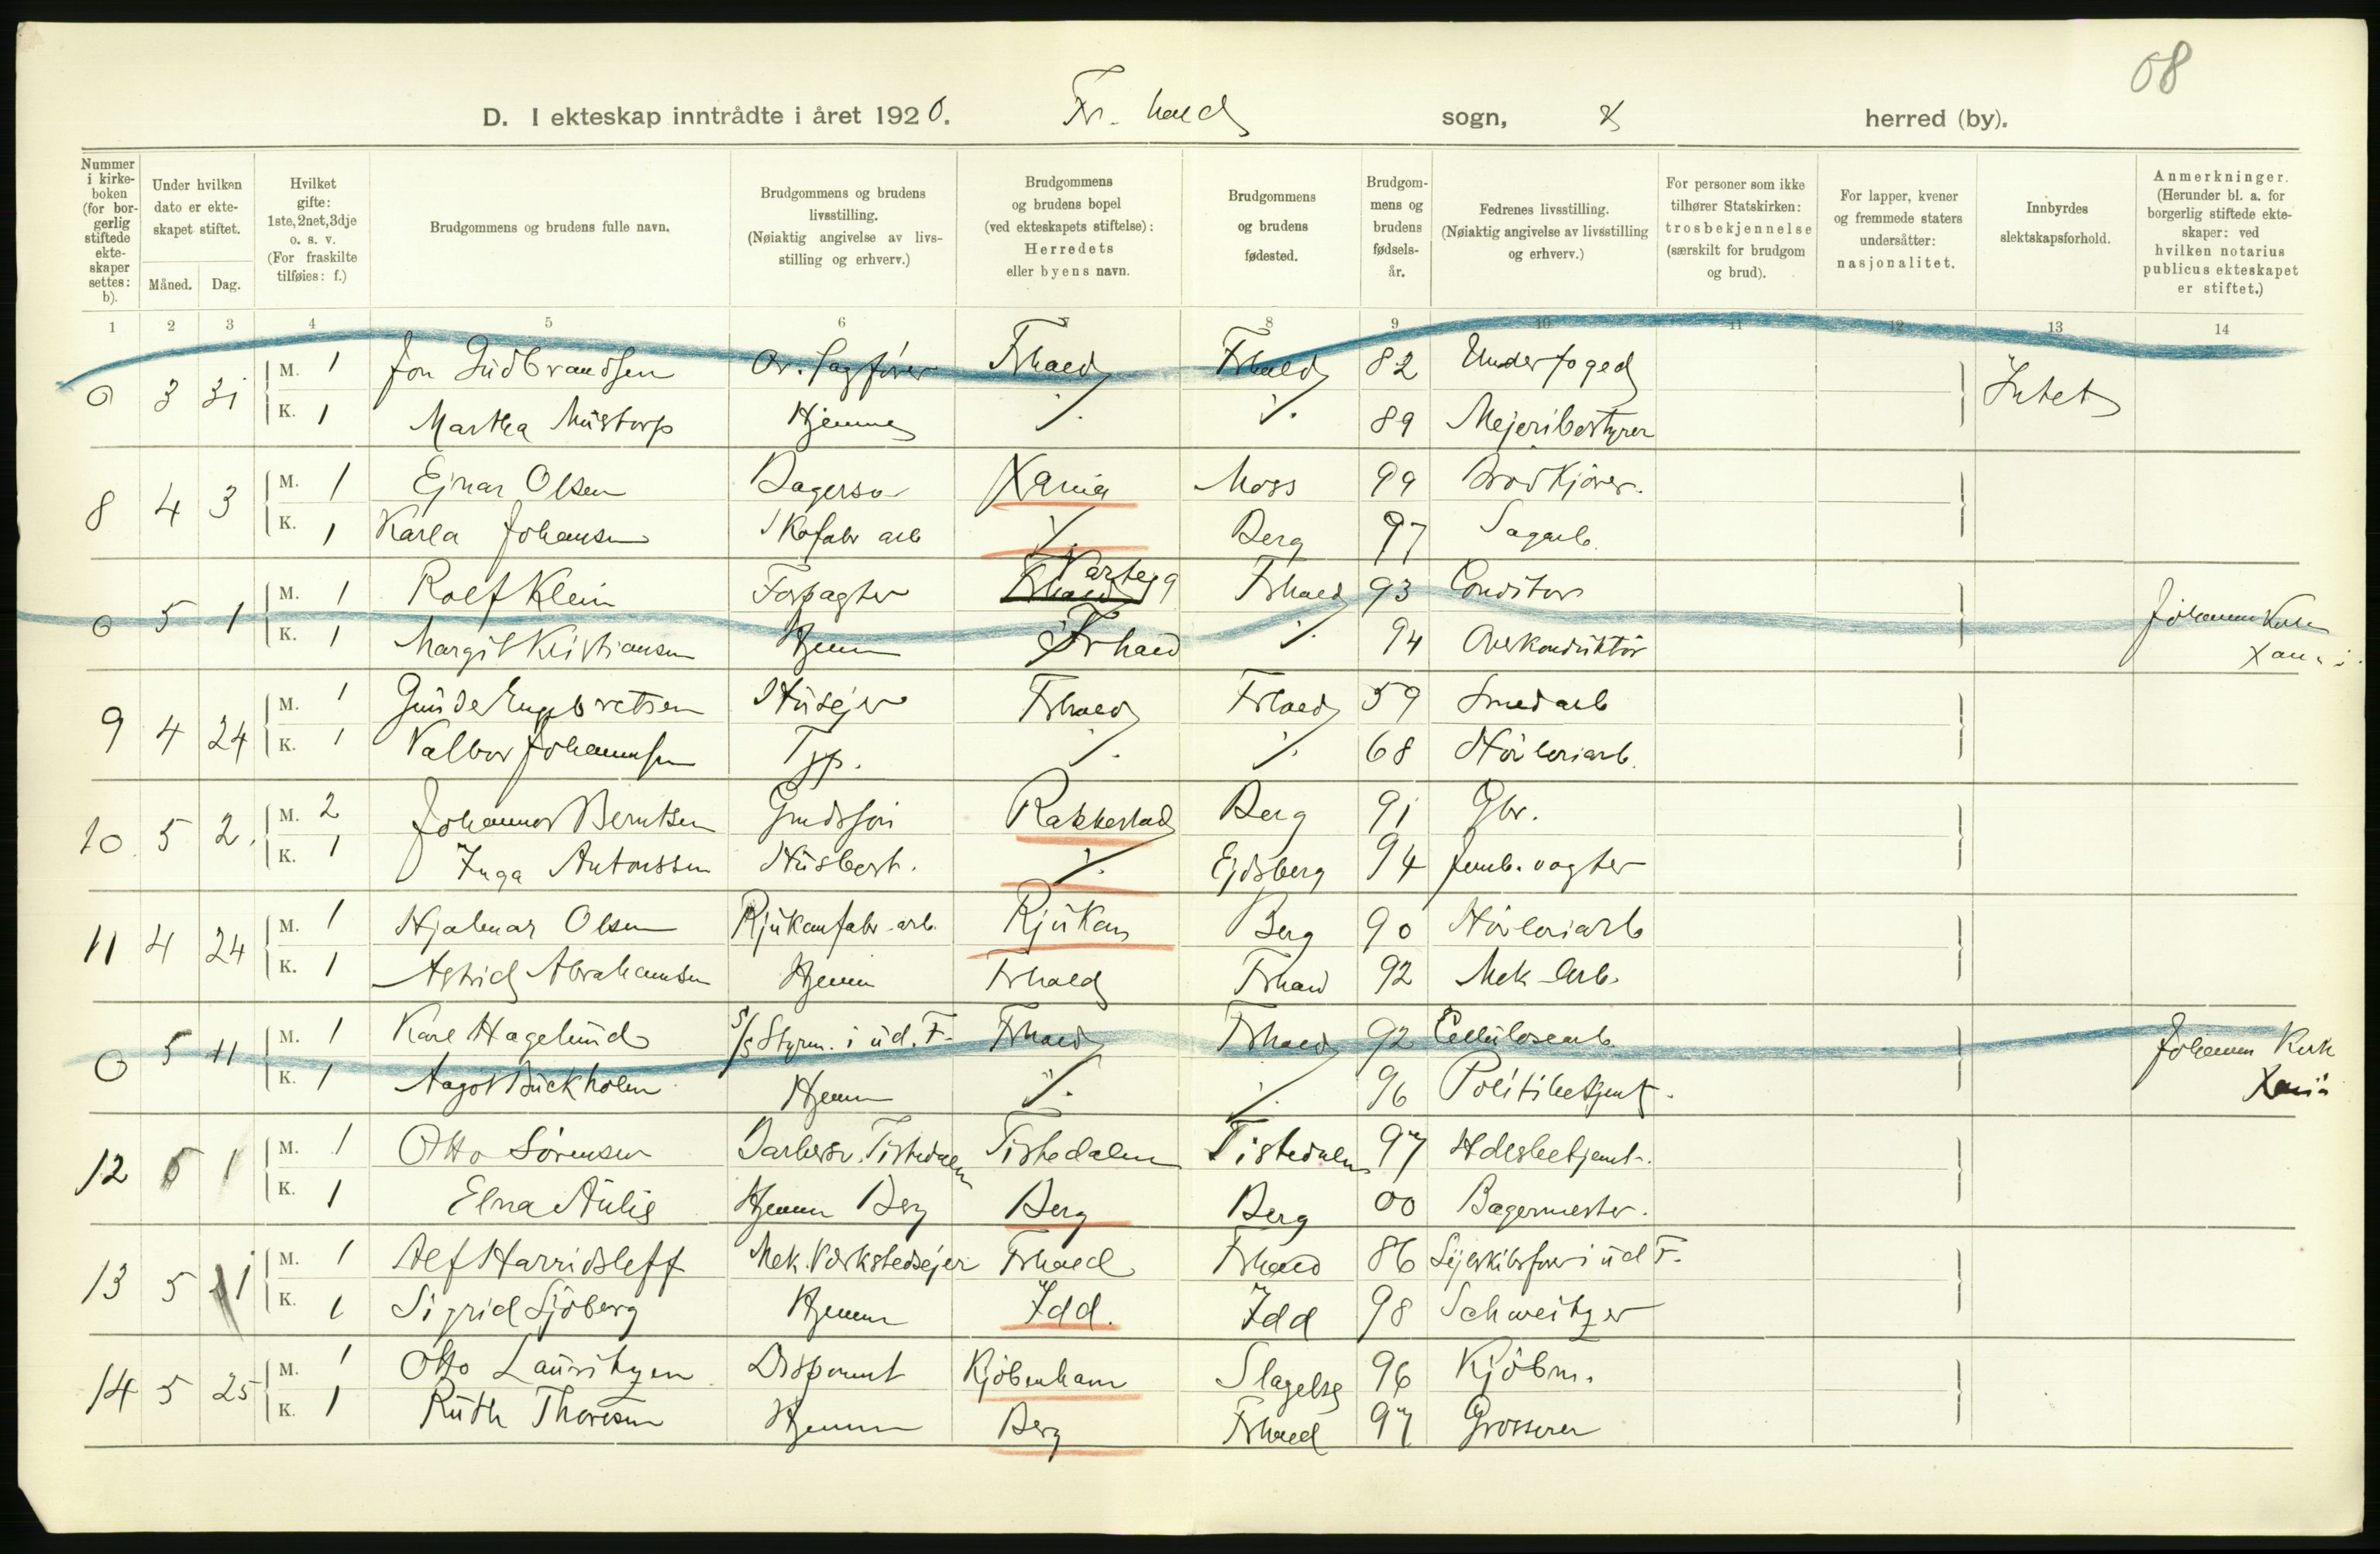 08
D. I ekteskap inntrådte i året 1920. Fr. hald sogn, herred (by).
Nummer i kirkeboken (for borgerlig stiftede ekteskaper settes: b).
Under hvilken dato er ekteskapet stiftet.
Måned. Dag.
Hvilket gifte: 1ste, 2net, 3dje o. s. v. (For fraskilte tilføies: f.)
Brudgommens og brudens fulle navn.
Brudgommens og brudens livsstilling. (Nøiaktig angivelse av livsstilling og erhverv.)
Brudgommens og brudens bopel (ved ekteskapets stiftelse): Herredets eller byens navn.
Brudgommens og brudens fødested.
Brudgommens og brudens fødselsår.
Fedrenes livsstilling. (Nøiaktig angivelse av livsstilling og erhverv.)
For personer som ikke tilhører Statskirken: trosbekjennelse (særskilt for brudgom og brud).
For lapper, kvener og fremmede staters undersåtter: nasjonalitet.
Innbyrdes slektskapsforhold.
Anmerkninger. (Herunder bl. a. for borgerlig stiftede ekteskaper: ved hvilken notarius publicus ekteskapet er stiftet.)
1 2 3 4 5 6 7 8 9 10 11 12 13 14
0 3 31 M. 1 Jon Gudbrandsen Or. Sagfører Frhald Frhald 82 Underfoged Intet
K. 1 Martha Mustorp Hjemme ./. ./. 89 Mejeribestyrer
8 4 3 M. 1 Ejnar Olsen Bagersv Xania Moss 99 Brødkjører.
K. 1 Karla Johansen Skofabr arb ./. Berg 97 Sagarb.
0 5 1 M. 1 Rolf Klein Forpagter Varteig Frhald 93 Conditor Johannes Kirke
K. 1 Margit Kristiansen Hjem Frhald ./. 94 Overkonduktør Xania
9 4 24 M. 1 Gunder Engebretsen Husejer Frhald Frhald 59 Smedarb
K. 1 Valbor Johannesen Tjp. ./. ./. 68 Høvleriarb.
10 5 2. M. 2 Johannes Berntsen Grudsfori Rakkestad Berg 91 Gbr.
K. 1 Inga Antonssen Husbest. ./. Ejdsberg 94 Jernb. vogter
11 4 24 M. 1 Hjalmar Olsen Rjukanfabr. arb. Rjukan Berg 90 Høvleriarb
K. 1 Astrid Abrahamsen Hjem Frhald Frhald 92 Mek Arb.
0 5 11 M. 1 Karl Hagelund S/S Styrm. i ud. F. Frhald Frhald 92 Cellulosearb. Johannes Kirk
K. 1 Aagot Buckholm Hjem ./. ./. 96 Politibetjent. Xania
12 5 1 M. 1 Otto Sørensen Barbersv. Tistedalen Tistedalen Tistedalen 97 Hdlsbetjent.
K. 1 Elna Aulie Hjemm Berg Berg Berg 00 Bagermester.
13 5 M. 1 Alf Harridsleff Mek. Værkstedsejer Frhald Frhald 86 Sejlskibsfører i ud F.
K. 1 Sigrid Sjöberg Hjemm Idd. Idd 98 Schweitzer
14 5 25 M. 1 Otto Lauritzen Disponent Kjöbenham Slagelse 96 Kjöbm.
K. 1 Ruth Thoresen Hjemm Berg Frhald 97 Grosserer